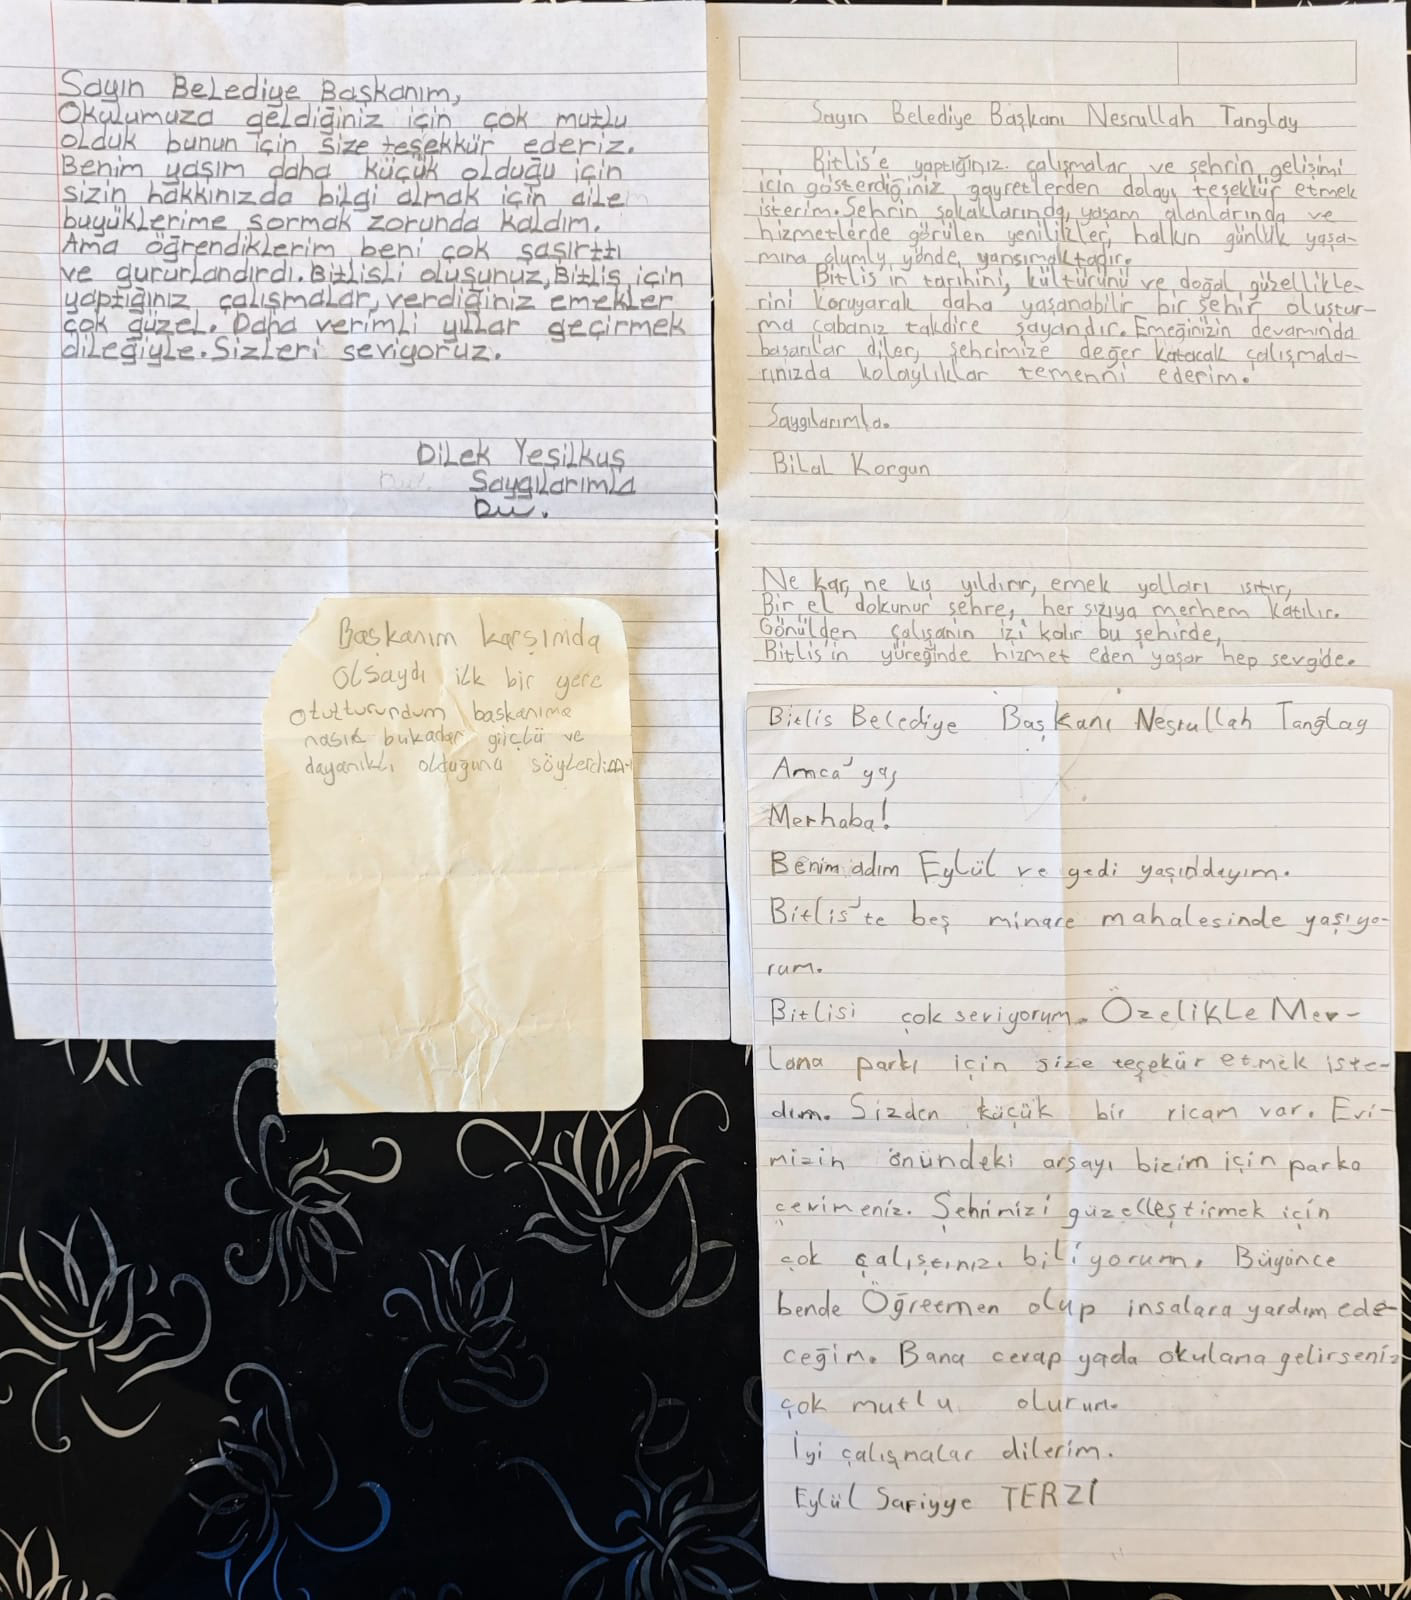 Sayın Belediye Başkanım,
Okulumuza geldiğiniz için çok mutlu
olduk bunun için size teşekkür ederiz.
Benim yaşım daha küçük olduğu için
sizin hakkınızda bilgi almak için aile
büyüklerime sormak zorunda kaldım.
Ama öğrendiklerim beni çok şaşırttı
ve gururlandırdı. Bitlisli oluşunuz, Bitlis için
yaptığınız çalışmalar, verdiğiniz emekler
çok güzel. Daha verimli yıllar geçirmek
dileğiyle. Sizleri seviyoruz.
Dilek Yeşilkuş
Saygılarımla
Başkanım karşımda
olsaydı ilk bir yere
otutturundum başkanıma
nasıl bukadar güçlü ve
dayanıklı olduğunu söylerdim
Sayın Belediye Başkanı Nesrullah Tanglay
Bitlis'e yaptığınız çalışmalar ve şehrin gelişimi
için gösterdiğiniz gayretlerden dolayı teşekkür etmek
isterim. Şehrin sokaklarında, yaşam alanlarında ve
hizmetlerde görülen yenilikler, halkın günlük yaşa-
mına olumlu yönde yansımaktadır.
Bitlis'in tarihini, kültürünü ve doğal güzellikle-
rini koruyarak daha yaşanabilir bir şehir oluştur-
ma çabanız takdire şayandır. Emeğinizin devamında
başarılar diler, şehrimize değer katacak çalışmala-
rınızda kolaylıklar temenni ederim.
Saygılarımla.
Bilal Korgun
Ne kar, ne kış yıldırır, emek yolları ısıtır,
Bir el dokunur şehre, her sızıya merhem katılır.
Gönülden çalışanın izi kalır bu şehirde,
Bitlis'in yüreğinde hizmet eden yaşar hep sevgide.
Bitlis Belediye Başkanı Nesrullah Tanğlay
Amca'ya,
Merhaba!
Benim adım Eylül ve yedi yaşıddayım.
Bitlis'te beş minare mahalesinde yaşıyo-
rum.
Bitlisi çok seviyorum. Özelikle Mev-
lana parkı için size teşekür etmek iste-
dim. Sizden küçük bir ricam var. Evi-
mizin önündeki arsayı bizim için parka
çevirmeniz. Şehrimizi güzelleştirmek için
çok biliyorum. Büyünce
bende Öğretmen olup insalara yardım ede-
ceğim. Bana cevap yada okulama gelirseniz
çok mutlu olurum.
İyi çalışmalar dilerim.
Eylül Safiyye TERZİ